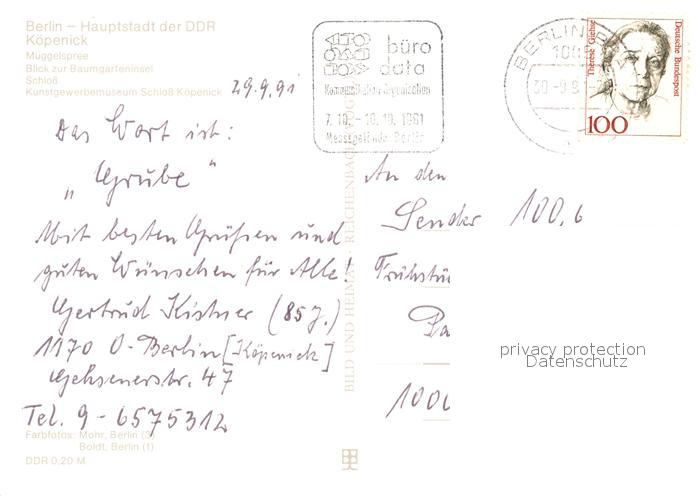 Berlin – Hauptstadt der DDR
Köpenick
Müggelspree
Blick zur Baumgarteninsel
Schloß
Kunstgewerbemuseum Schloß Köpenick
29.9.91
Das Wort ist:
„Grube"
Mit besten Grüßen und
guten Wünschen für Alle!
Gertrud Kistner (85 J.)
1170 O-Berlin [Köpenick]
47
Tel. 9-6575312
Farbfotos: Mohr, Berlin (3)
Boldt, Berlin (1)
DDR 0,20 M
BILD UND HEIMAT REICHENBACH
büro
data
7.10.-10.10.1991
Messegelände Berlin
BERLIN
Therese Giehse
Deutsche Bundespost
100
An den
Sender 100,6
privacy protection
Datenschutz